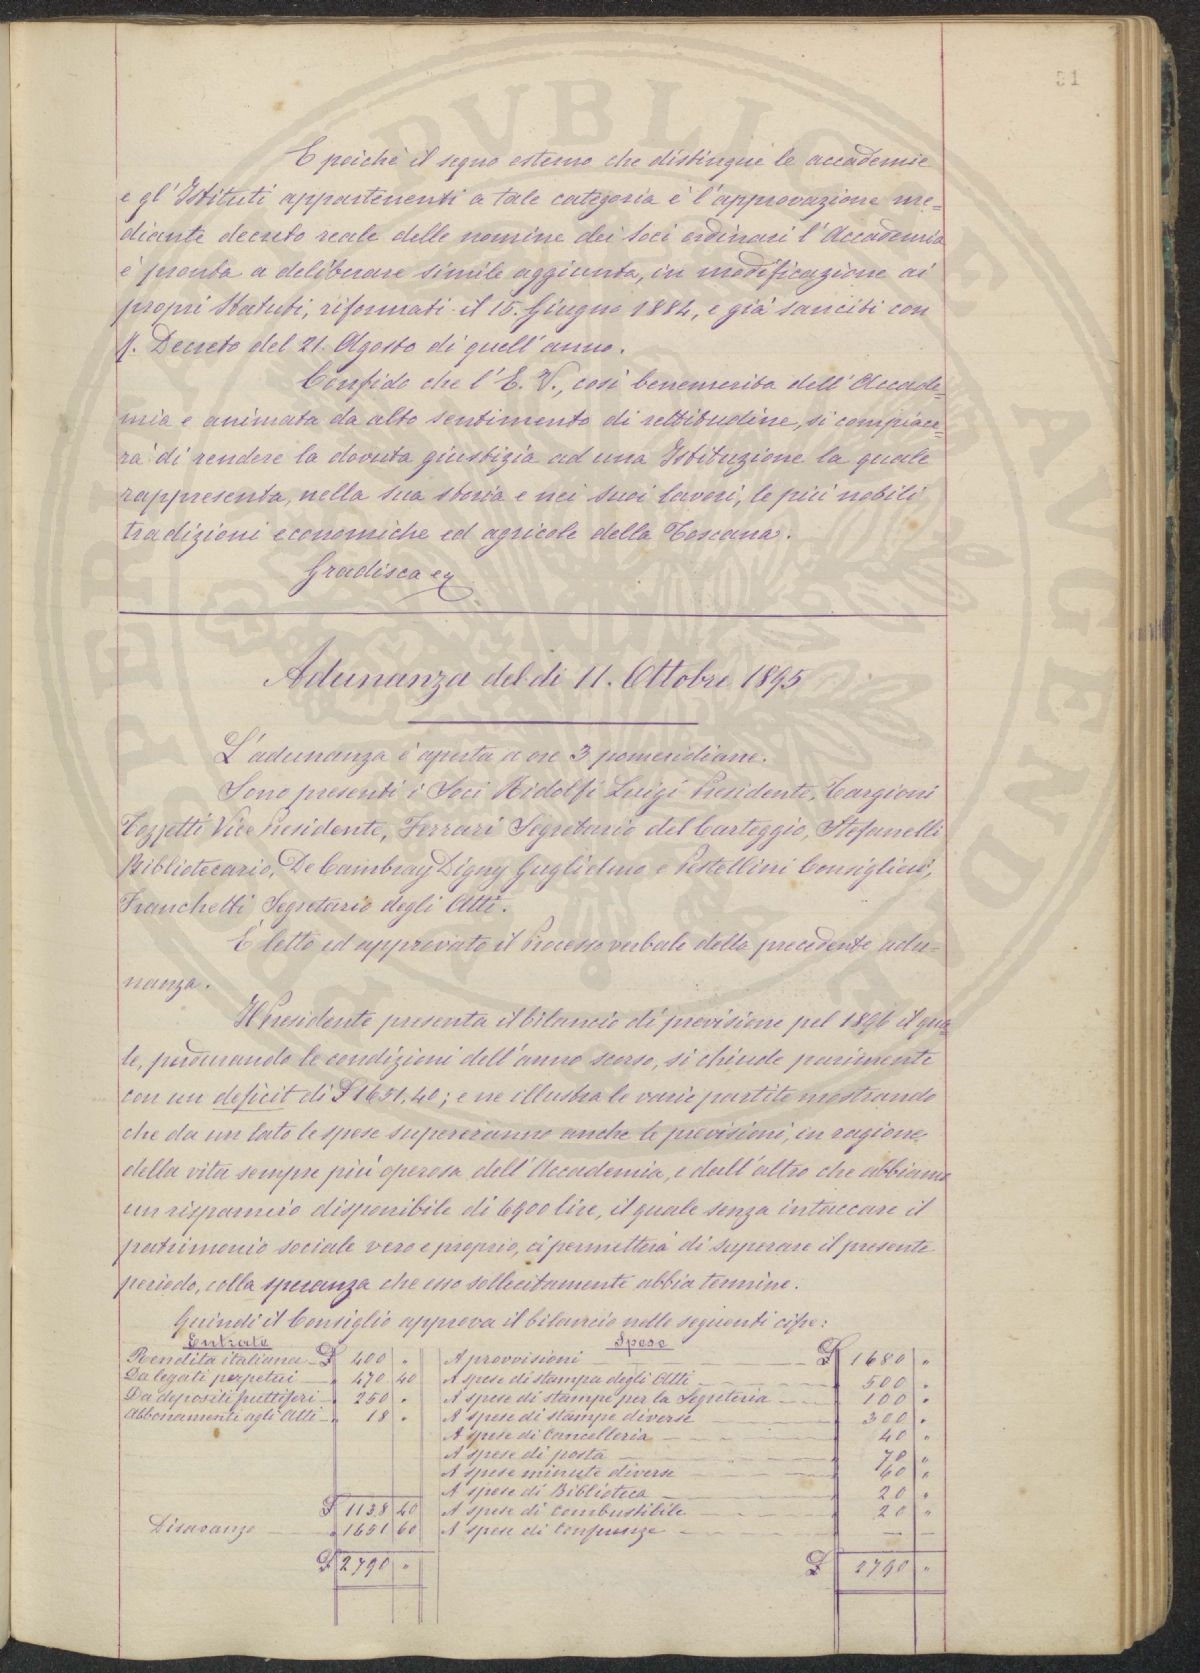 51
E poichè il segno esterno che distingue le accademie
e gl'Istituti appartenenti a tale categoria è l'approvazione me=
diante decreto reale delle nomine dei Soci ordinari l'Accademia
è pronta a deliberare simile aggiunta, in modificazione ai
propri Statuti, riformati il 15. Giugno 1884, e già sanciti con
R. Decreto del 21. Agosto di quell'anno.
Confido che l'E. V., così benemerita dell'Accade=
mia e animata da alto sentimento di rettitudine, si compiace=
rà di rendere la dovuta giustizia ad una Istituzione la quale
rappresenta, nella sua storia e nei suoi lavori, le più nobili
tradizioni economiche ed agricole della Toscana.
Gradisca ec
Adunanza del dì 11. Ottobre 1895
L'adunanza è aperta a ore 3 pomeridiane.
Sono presenti i Soci Ridolfi Luigi Presidente, Targioni
Tozzetti Vice Presidente, Ferrari Segretario del Carteggio, Stefanelli
Bibliotecario, De Cambray Digny Guglielmo e Pestellini Consiglieri,
Franchetti Segretario degli Atti.
È letto ed approvato il Processo verbale della precedente adu=
nanza.
Il Presidente presenta il bilancio di previsione pel 1896 il qua=
le, perdurando le condizioni dell'anno scorso, si chiude parimente
con un deficit di £ 1651,40; e ne illustra le varie partite mostrando
che da un lato le spese supereranno anche le previsioni, in ragione
della vita sempre più operosa dell'Accademia, e dall'altro che abbiamo
un risparmio disponibile di 6900 lire, il quale senza intaccare il
patrimonio sociale vero e proprio, ci permetterà di superare il presente
periodo, colla speranza che esso sollecitamente abbia termine.
Quindi il Consiglio approva il bilancio nelle seguenti cifre:
Entrate Spese
Rendita italiana £ 400 " A provvisioni £ 1680 "
Da legati perpetui " 470 40 A spese di stampa degli Atti " 500 "
Da depositi fruttiferi " 250 " A spese di stampe per la Segreteria " 100 "
Abbonamenti agli Atti " 18 " A spese di stampe diverse " 300 "
A spese di Cancelleria " 40 "
A spese di posta " 70 "
A spese minute diverse " 60 "
A spese di Biblioteca " 20 "
£ 1138 40 A spese di Combustibile " 20 "
Disavanzo " 1651 60 A spese di Conferenze — —
£ 2790 " £ 2790 "
PUBLICAE